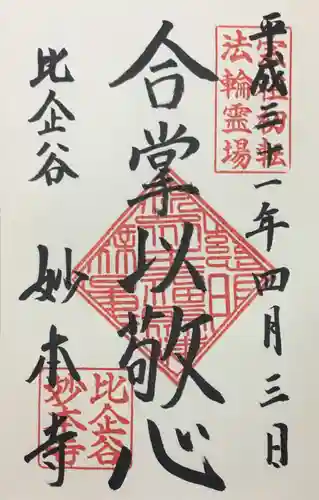 平成三十一年四月三日
合掌以敬心
比企谷
妙本寺
法輪霊場
比企谷
妙本寺